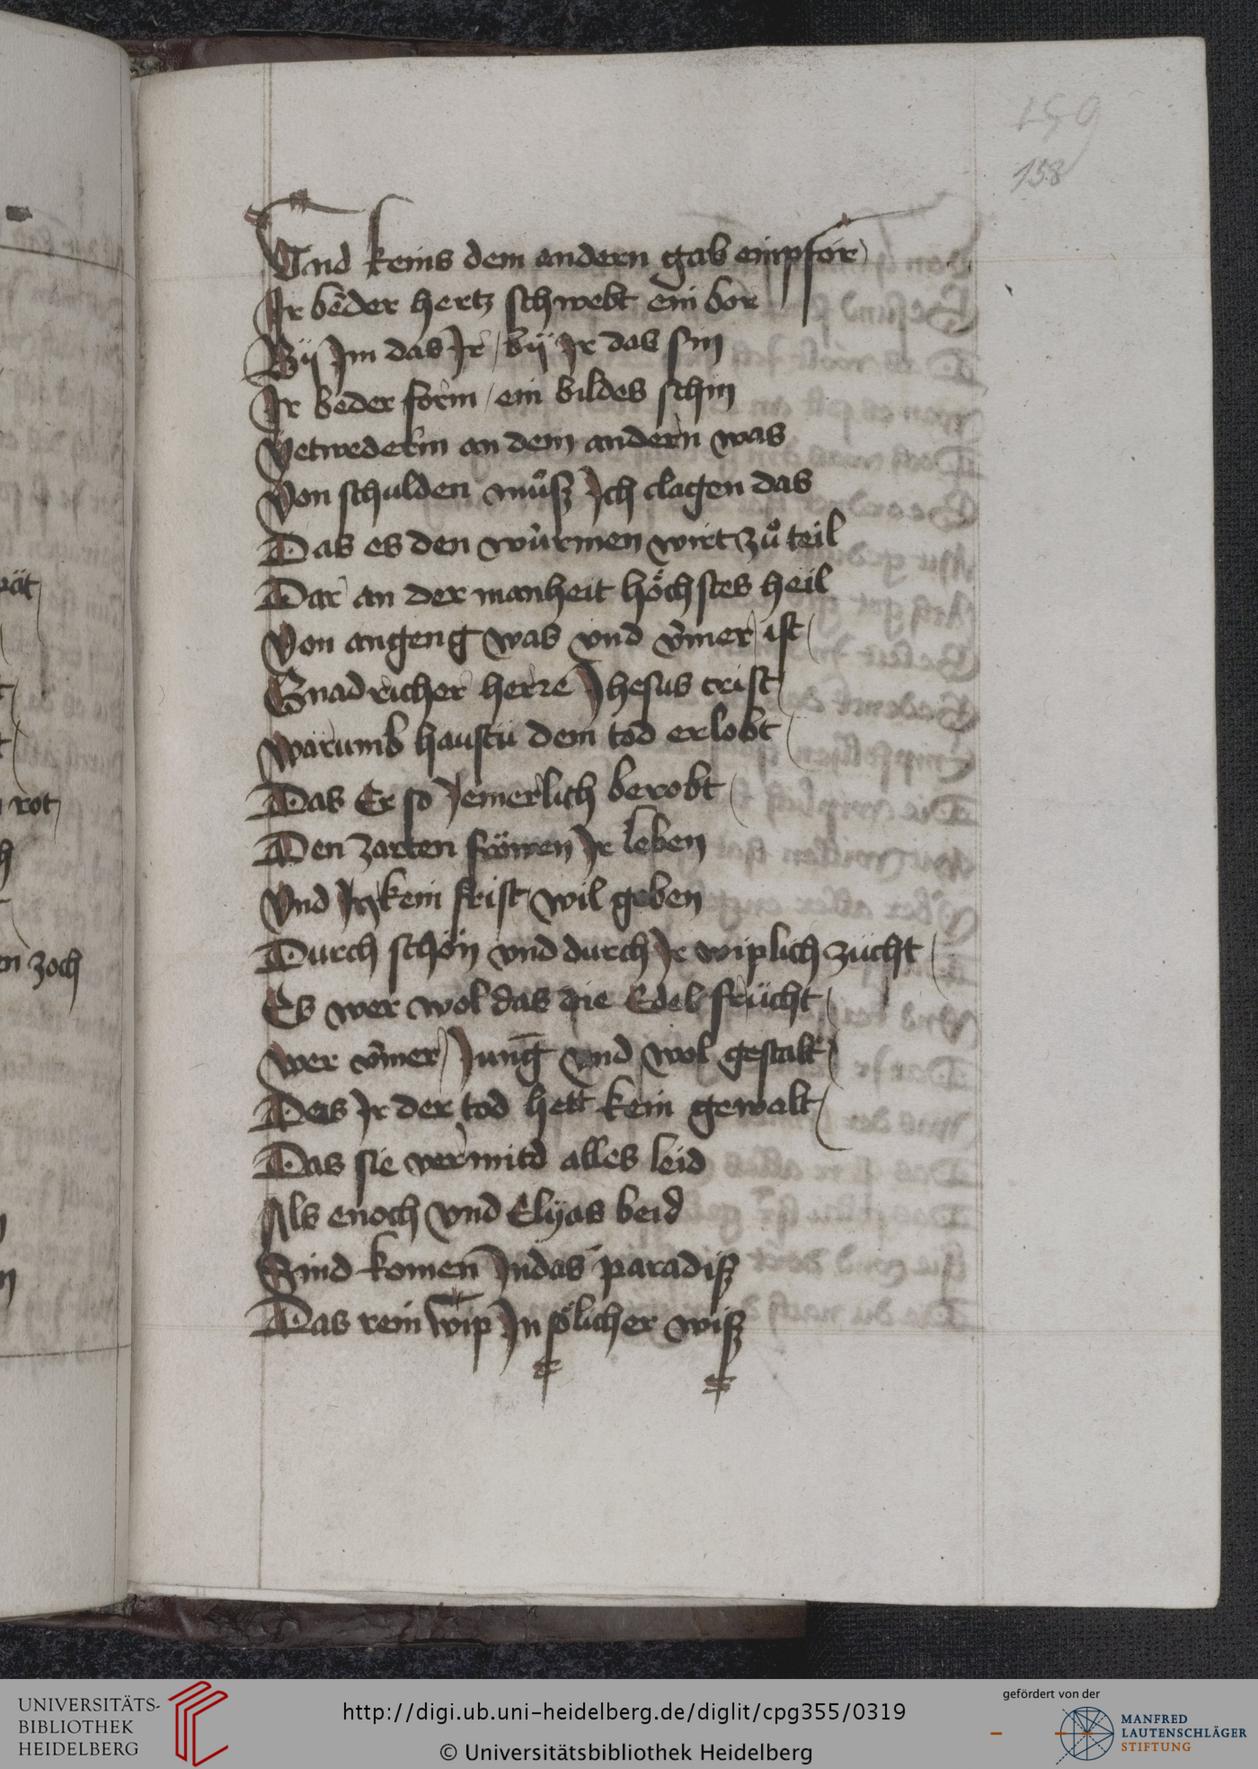 159
158
Vnd keins dem andern gab empfor
Ir beder hertz schwebt ein bor
Bÿ Im das Ir / bÿ Ir das sin
Ir beder form / ein bildes schin
Yetwederm an dem andern was
Von schulden můsz Ich clagen das
Das es den würmen wirt zů teil
Dar an der manheit höchstes heil
Von angeng was vnd ỹmer ist
Gnadricher herre Jhesus crist
Warumb haustu dem tod erlobt
Das Er so Jemerlich berobt
Den zarten fröwen Ir leben
Vnd Ir kein frist wil geben
Durch schön vnd durch Ir wiplich zücht
Es wer wol das die Edel frücht
Wer ỹmer Jung vnd wol gestalt
Das Ir der tod hett kein gewalt
Das sie vermitd alles leid
Als enoch vnd Elÿas beid
Sind komen Indas paradisz
Das rein wip In sölicher wisz
rot
en zoch
UNIVERSITÄTS-
BIBLIOTHEK
HEIDELBERG
http://digi.ub.uni-heidelberg.de/diglit/cpg355/0319
© Universitätsbibliothek Heidelberg
gefördert von der
MANFRED
LAUTENSCHLÄGER
STIFTUNG